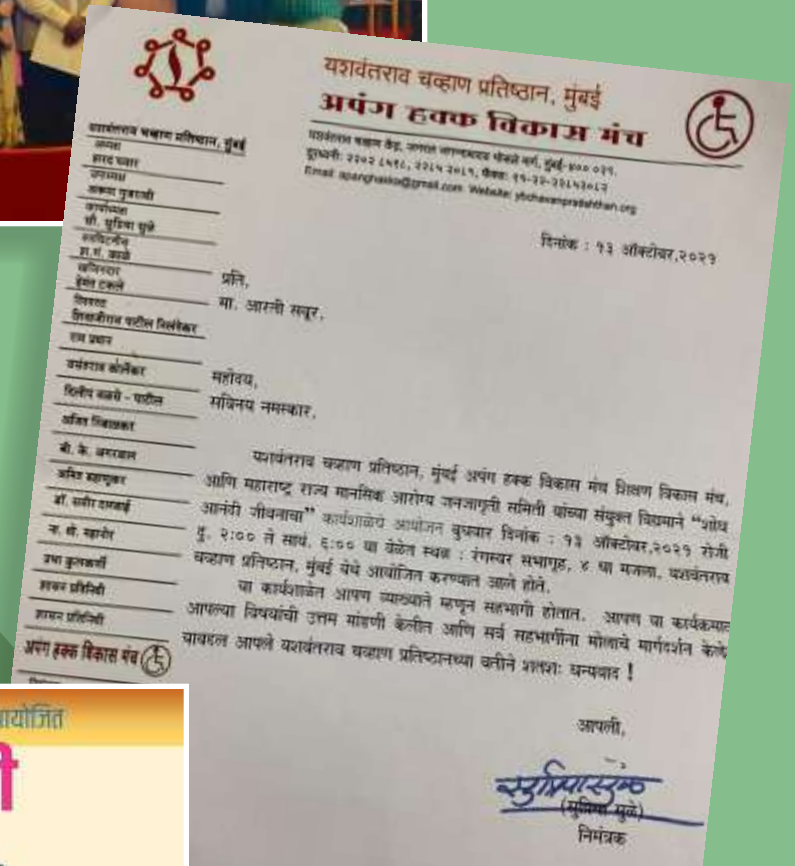 यशवंतराव चव्हाण प्रतिष्ठान, मुंबई
अपंग हक्क विकास मंच
यशवंतराव चव्हाण केंद्र, जनरल जगन्नाथराव भोसले मार्ग, मुंबई-४०० ०२१.
Email: apanghakka@gmail.com Website: ybchavanpratishthan.org
दिनांक : १३ ऑक्टोबर,२०२१
यशवंतराव चव्हाण प्रतिष्ठान, मुंबई
अध्यक्ष
शरद पवार
सौ. सुप्रिया सुळे
हेमंत टकले
राम प्रधान
दिलीप वळसे - पाटील
बी. के. अगरवाल
प्रभा कुलकर्णी
शासन प्रतिनिधी
शासन प्रतिनिधी
अपंग हक्क विकास मंच
प्रति,
मा. आरती सवूर,
महोदय,
सविनय नमस्कार,
यशवंतराव चव्हाण प्रतिष्ठान, मुंबई अपंग हक्क विकास मंच शिक्षण विकास मंच,
आणि महाराष्ट्र राज्य मानसिक आरोग्य जनजागृती समिती यांच्या संयुक्त विद्यमाने “शोध
आनंदी जीवनाचा” कार्यशाळेचे आयोजन बुधवार दिनांक : १३ ऑक्टोबर,२०२१ रोजी
दु. २:०० ते सायं. ६:०० या वेळेत स्थळ : रंगस्वर सभागृह, ४ था मजला, यशवंतराव
चव्हाण प्रतिष्ठान, मुंबई येथे आयोजित करण्यात आले होते.
या कार्यशाळेत आपण व्याख्याते म्हणून सहभागी होतात. आपण या कार्यक्रमात
आपल्या विषयांची उत्तम मांडणी केलीत आणि सर्व सहभागींना मोलाचे मार्गदर्शन केले
याबद्दल आपले यशवंतराव चव्हाण प्रतिष्ठानच्या वतीने शतशः धन्यवाद !
आपली,
(सुप्रिया सुळे)
निमंत्रक